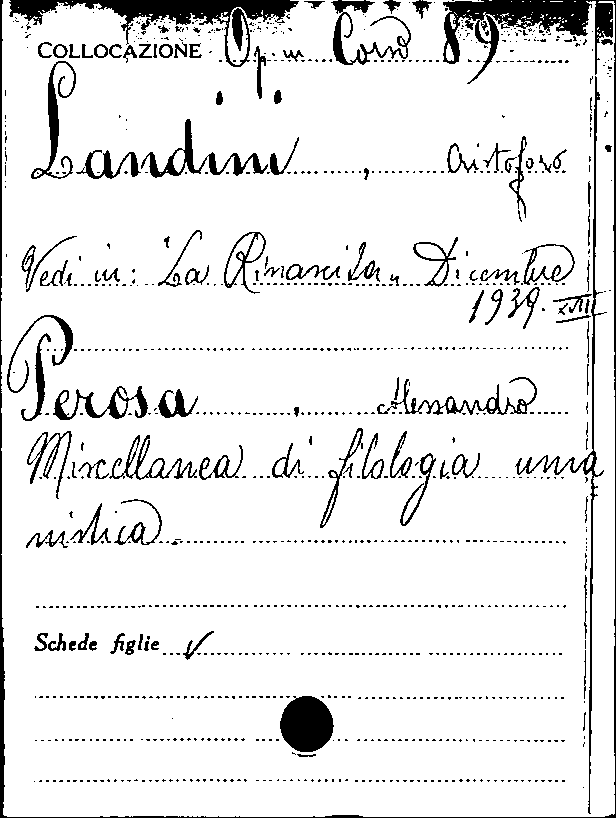 COLLOCAZIONE Op. in Corso 89
Landini, Cristoforo
Vedi in: "La Rinascita" Dicembre
1939. XVIII
Perosa, Alessandro
Miscellanea di filologia uma
nistica.
Schede figlie ✓